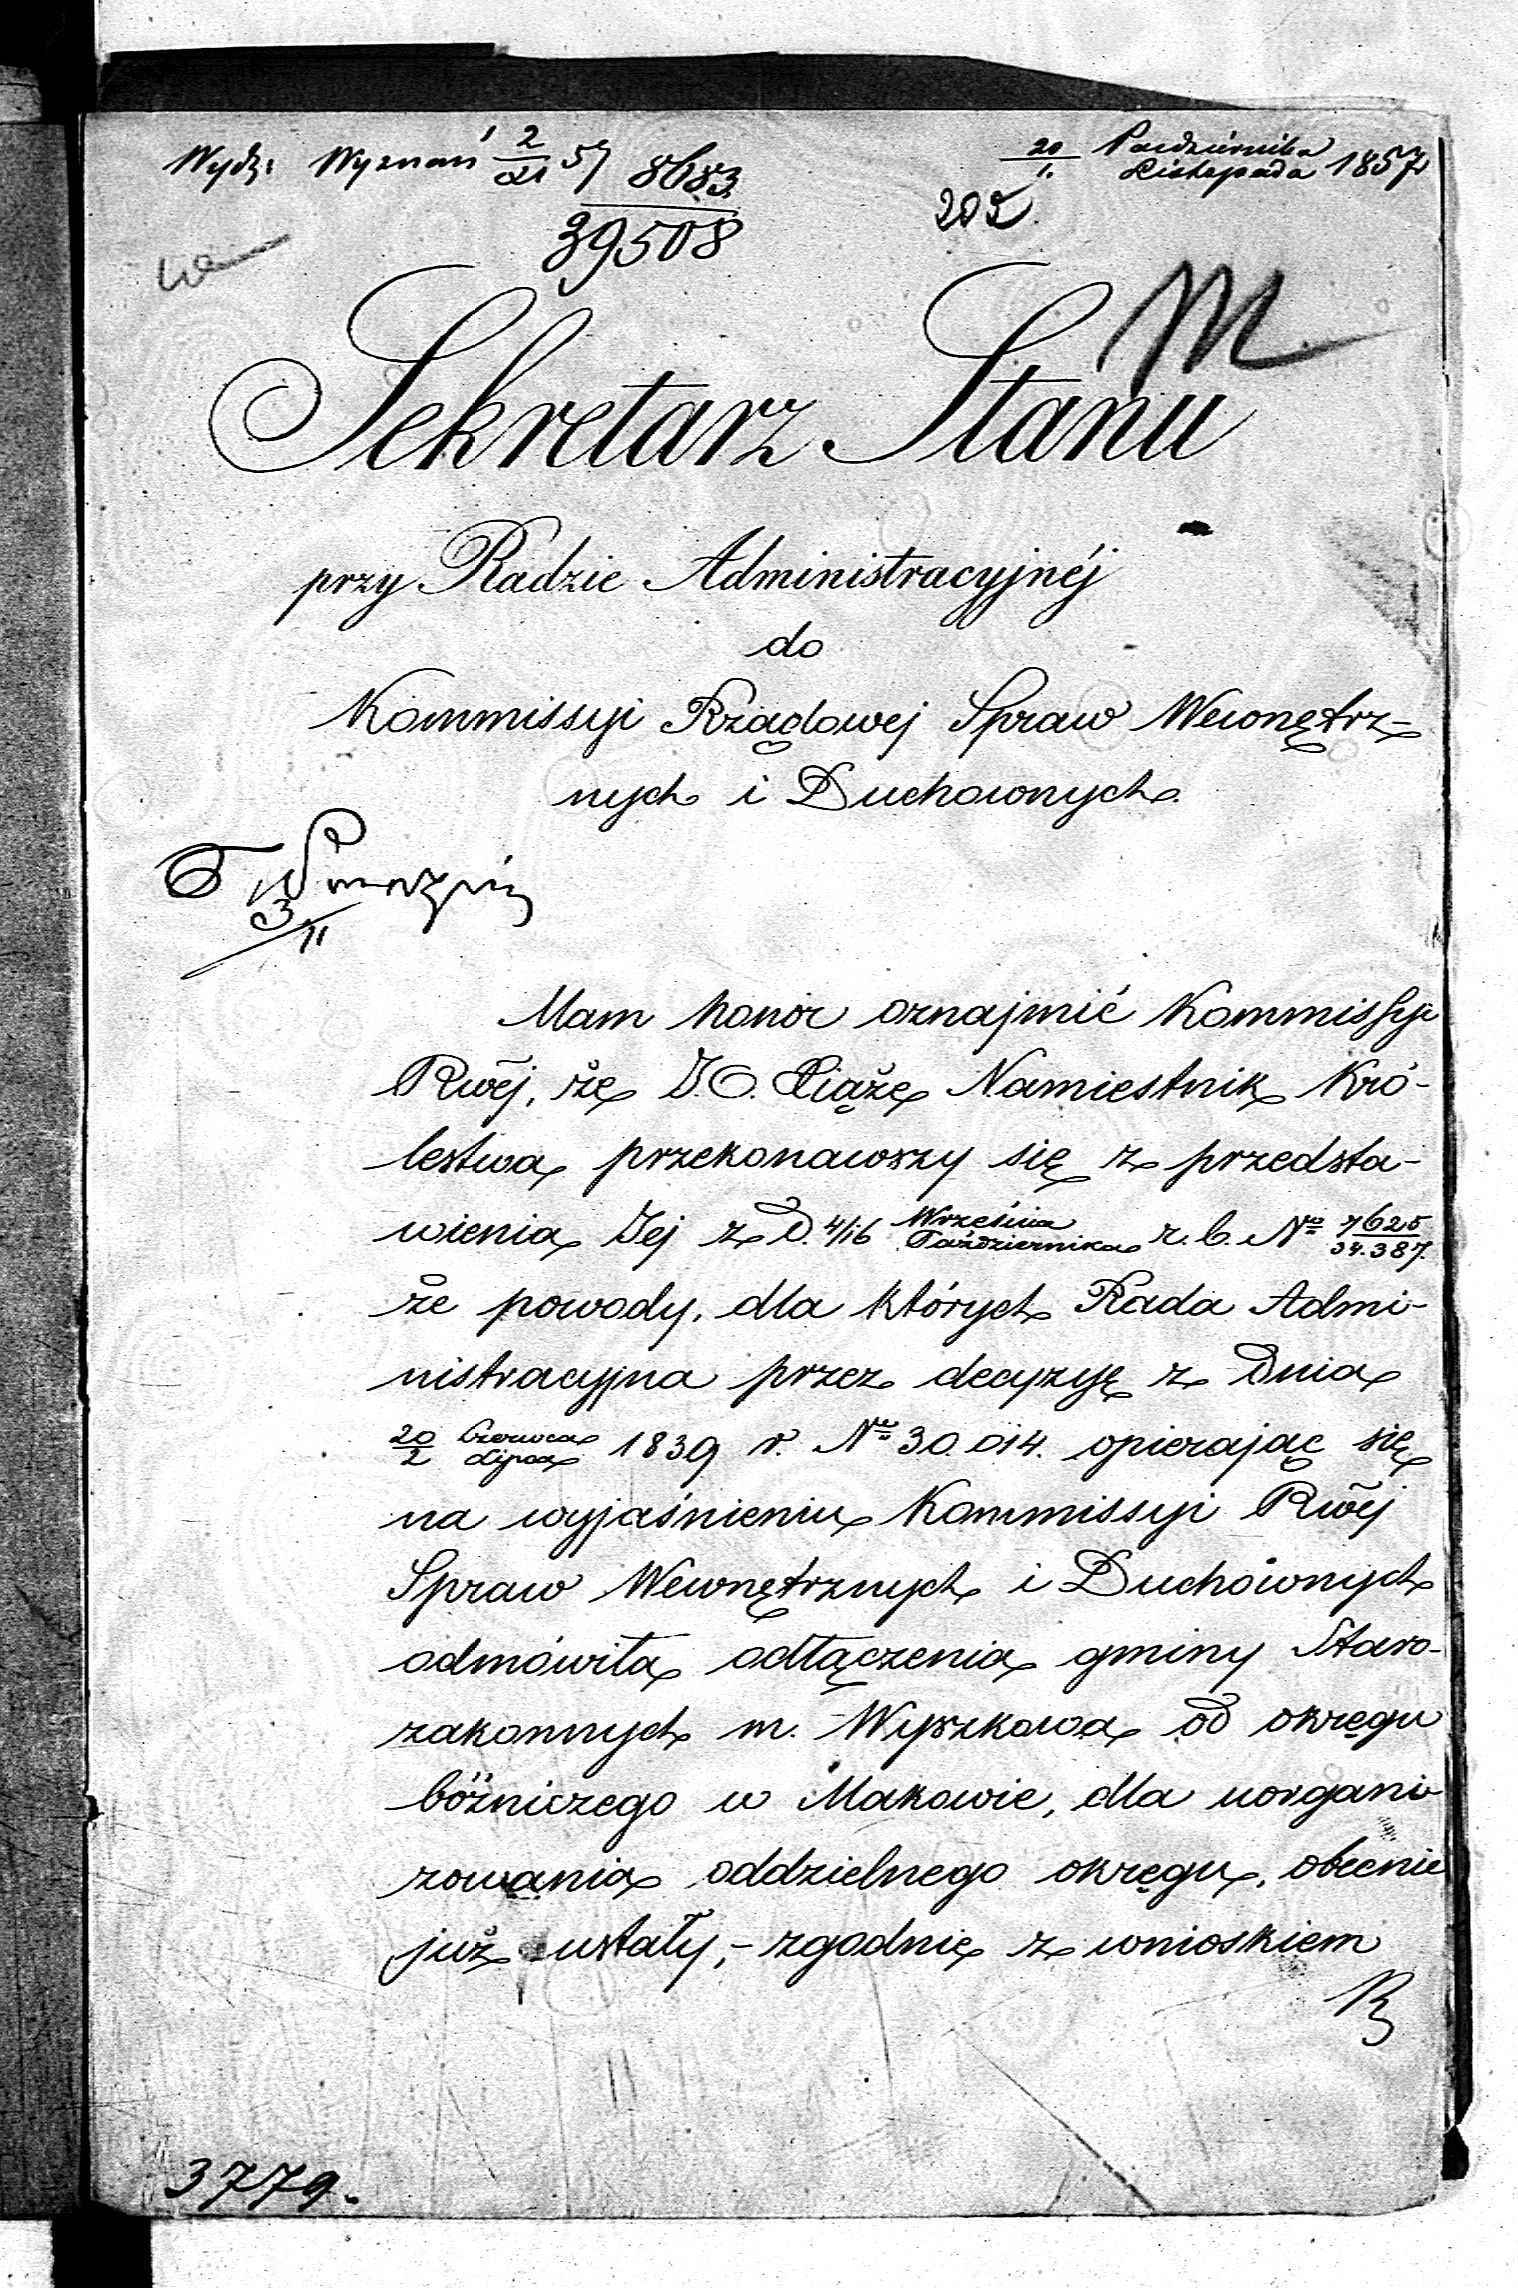 Wydz: Wyznań 2/21 57 8683
39508
20/1. Października/Listopada 1857
205.
Sekretarz Stanu
przy Radzie Administracyjnéj
do
Kommissyi Rządowej Spraw Wewnętrz-
nych i Duchownych.
3/11
Mam honor oznajmić Kommissyi
Rwéj, że J.O. Xiąże Namiestnik Kró-
lestwa przekonawszy się z przedsta-
wienia Jej z D. 4/16 Września/Października r. b. No 7625/34.387.
że powody, dla których Rada Admi-
nistracyjna przez decyzyę z Dnia
20/2 Czerwca/Lipca 1839 r. No 30.014. opierając się
na wyjaśnieniu Kommissyi Rwéj
Spraw Wewnętrznych i Duchownych
odmówiła odłączenia gminy Staro-
zakonnych m. Wyszkowa od okręgu
bóżniczego w Makowie, dla uorgani-
zowania oddzielnego okręgu, obecnie
już ustały, - zgodnie z wnioskiem
3779.